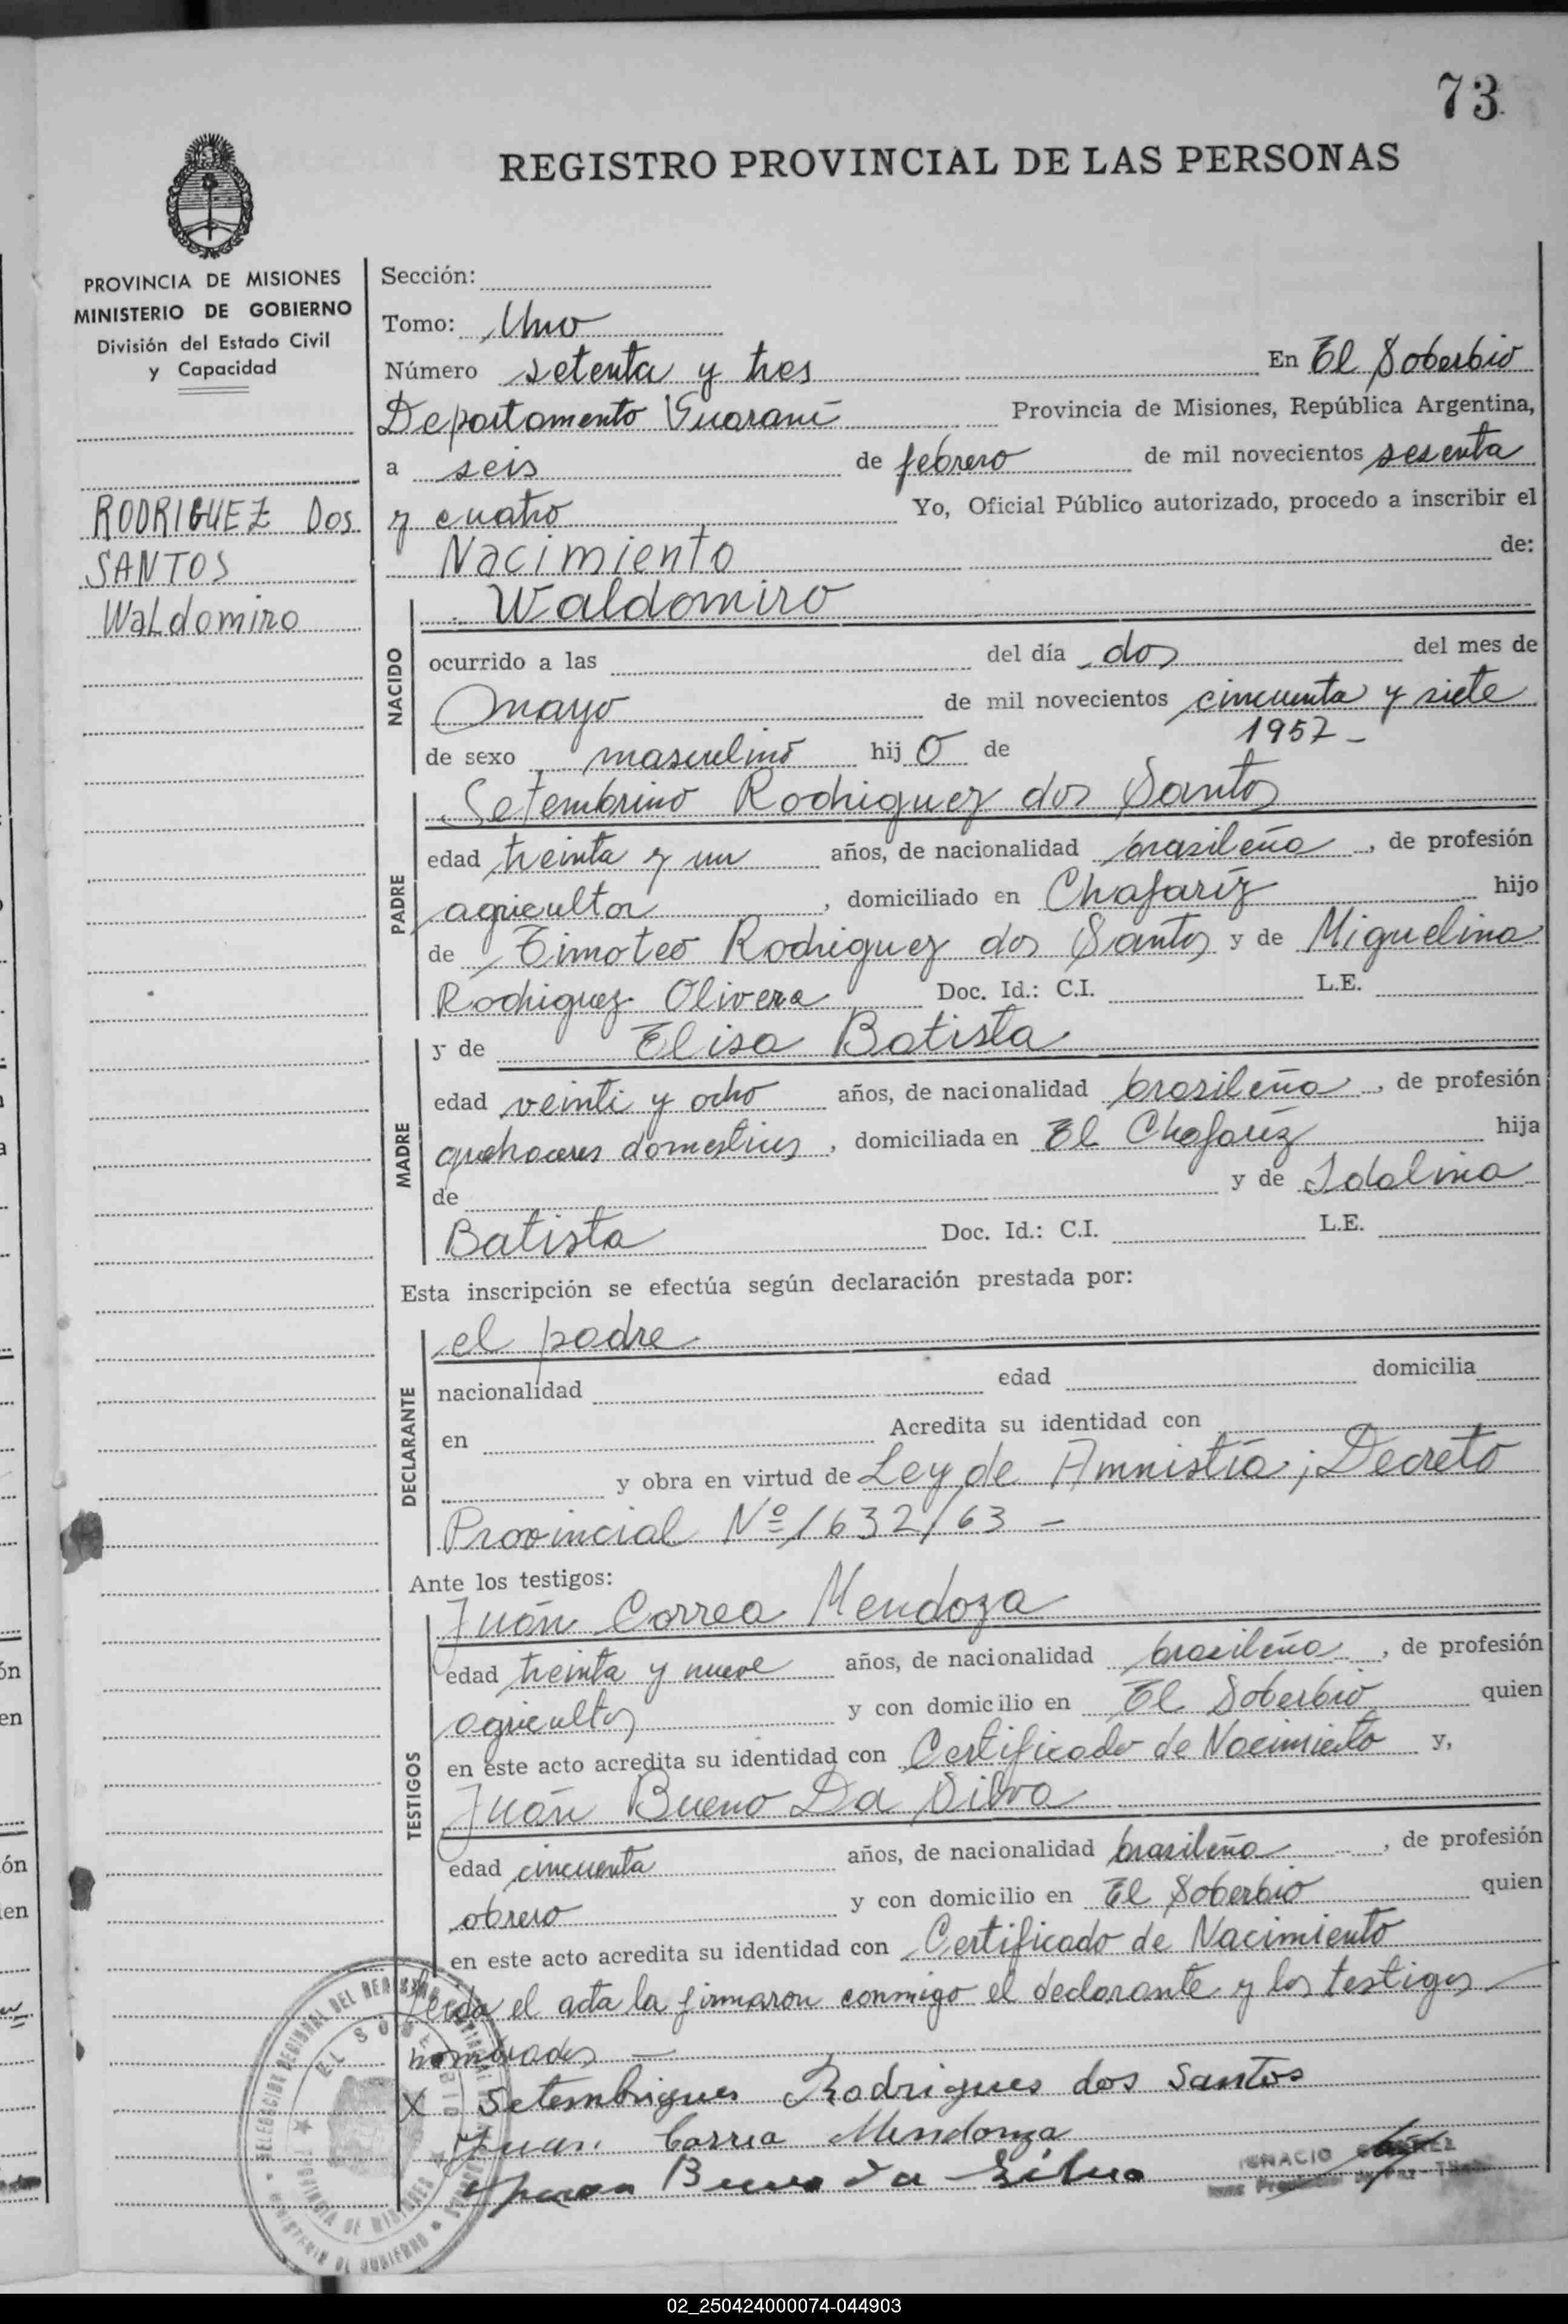 73
REGISTRO PROVINCIAL DE LAS PERSONAS
PROVINCIA DE MISIONES
MINISTERIO DE GOBIERNO
División del Estado Civil
y Capacidad
RODRIGUEZ Dos
SANTOS
Waldomiro
Sección:
Tomo: Uno
Número setenta y tres En El Soberbio
Departamento Guaraní Provincia de Misiones, República Argentina,
a seis de febrero de mil novecientos sesenta
y cuatro Yo, Oficial Público autorizado, procedo a inscribir el
Nacimiento de:
NACIDO
Waldomiro
ocurrido a las del día dos del mes de
mayo de mil novecientos cincuenta y siete
1957 -
de sexo masculino hij o de
PADRE
Setembrino Rodriguez dos Santos
edad treinta y un años, de nacionalidad brasileña, de profesión
agricultor, domiciliado en Chafariz hijo
de Timoteo Rodriguez dos Santos y de Miguelina
Rodriguez Olivera Doc. Id.: C.I. L.E.
MADRE
y de Elisa Batista
edad veinti y ocho años, de nacionalidad brasileña, de profesión
quehaceres domesticos, domiciliada en El Chafariz hija
de y de Idalina
Batista Doc. Id.: C.I. L.E.
Esta inscripción se efectúa según declaración prestada por:
DECLARANTE
el padre
nacionalidad edad domicilia
en Acredita su identidad con
y obra en virtud de Ley de Amnistía; Decreto
Provincial Nº 1632/63 -
Ante los testigos:
TESTIGOS
Juán Correa Mendoza
edad treinta y nueve años, de nacionalidad brasileña, de profesión
agricultor y con domicilio en El Soberbio quien
en este acto acredita su identidad con Certificado de Nacimiento y,
Juán Bueno Da Silva
edad cincuenta años, de nacionalidad brasileña, de profesión
obrero y con domicilio en El Soberbio quien
en este acto acredita su identidad con Certificado de Nacimiento
Leida el acta la firmaron conmigo el declarante y los testigos
nombrados -
X Setembrigues Rodrigues dos Santos
Juan Correa Mendonza
Bueno da Silva
IGNACIO
EL SOBERBIO
PROVINCIA DE MISIONES
MINISTERIO DE GOBIERNO
02_250424000074-044903